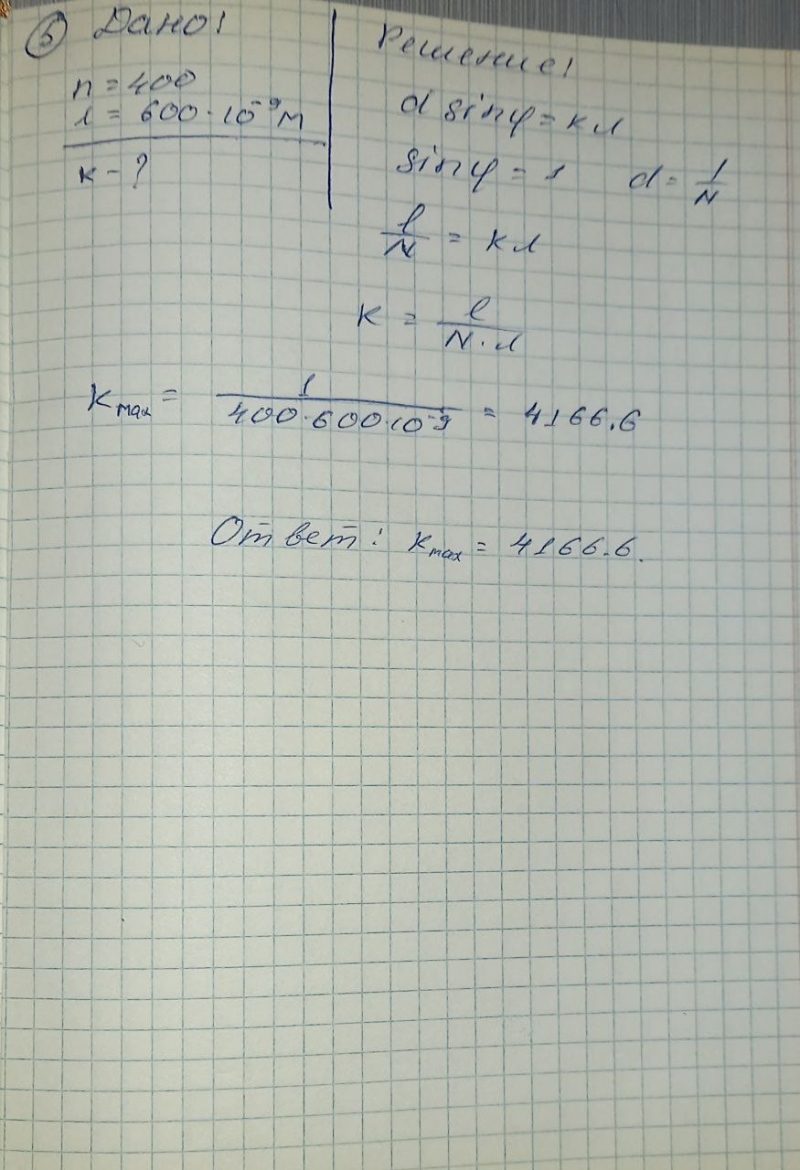 5 Дано!
n = 400
λ = 600 · 10⁻⁹ м
к - ?
Решение!
d sinφ = кλ
sinφ = 1 d = 1/N
l/N = кλ
к = l/(N · λ)
к max = 1/(400 · 600 · 10⁻⁹) = 4166.6
Ответ: к max = 4166.6.